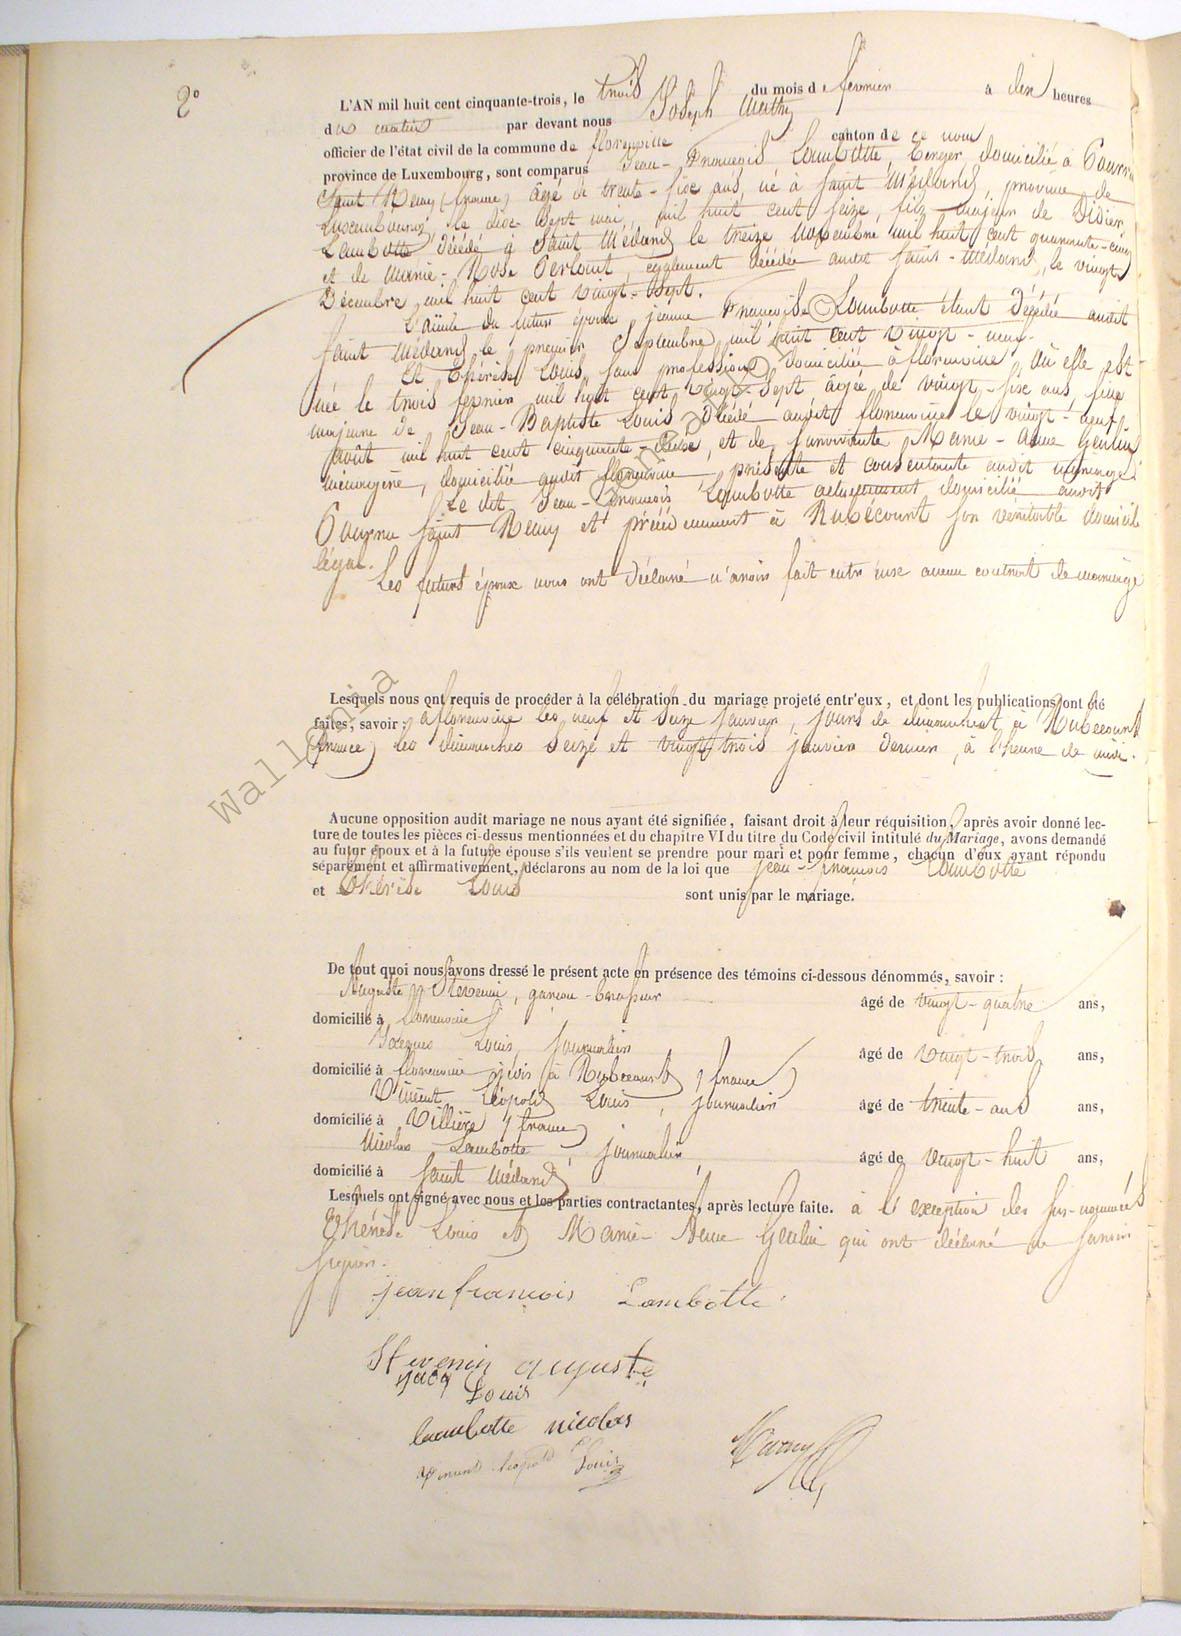 2°
L'AN mil huit cent cinquante-trois, le trois du mois de février à dix heures
du matin par devant nous Joseph
officier de l'état civil de la commune de florenville canton de ce nom
province de Luxembourg, sont comparus Jean-François Lambotte, berger, domicilié à Pourru
Saint Remy (france) âgé de trente-six ans, né à Saint Médard, province de
Luxembourg, le dix-sept mai, mil huit cent seize, fils majeur de Didier
Lambotte décédé à Saint Médard le treize novembre mil huit cent quarante-cinq
et de Marie-Rose également décédée audit Saint-Médard, le vingt
Décembre mil huit cent vingt-sept.
L'aïeule du futur époux jeanne françoise Lambotte étant décédée audit
Saint Médard le premier Septembre mil huit cent vingt-neuf.
Et Thérèse Louis, sans profession domiciliée à florenville où elle est
née le trois février mil huit cent vingt-sept âgée de vingt-six ans, fille
majeure de Jean-Baptiste Louis décédé audit florenville le vingt-neuf
août mil huit cent cinquante-deux, et de survivante Marie-Anne
ménagère, domiciliée audit florenville présente et consentante audit mariage.
Le dit Jean-François Lambotte actuellement domicilié audit
Pourru Saint Remy et précédemment à Rubécourt son véritable domicile
légal.
Les futurs époux nous ont déclaré n'avoir fait entr'eux aucun contrat de mariage
Lesquels nous ont requis de procéder à la célébration du mariage projeté entr'eux, et dont les publications ont été
faites, savoir : à florenville les neuf et seize janvier, jours de dimanche et à Rubécourt
(france) les dimanches seize et vingt-trois janvier dernier, à l'heure de midi.
Aucune opposition audit mariage ne nous ayant été signifiée, faisant droit à leur réquisition, après avoir donné lec-
ture de toutes les pièces ci-dessus mentionnées et du chapitre VI du titre du Code civil intitulé du Mariage, avons demandé
au futur époux et à la future épouse s'ils veulent se prendre pour mari et pour femme, chacun d'eux ayant répondu
séparément et affirmativement, déclarons au nom de la loi que Jean-François Lambotte
et Thérèse Louis sont unis par le mariage.
De tout quoi nous avons dressé le présent acte en présence des témoins ci-dessous dénommés, savoir :
Auguste Stevenin, garçon-brasseur âgé de vingt-quatre ans,
domicilié à florenville
Jacques Louis, journalier âgé de vingt-trois ans,
domicilié à florenville à Rubécourt (france)
Léopold Louis, journalier âgé de trente-ans ans,
domicilié à Villière (france)
Nicolas Lambotte, journalier âgé de vingt-huit ans,
domicilié à Saint Médard
Lesquels ont signé avec nous et les parties contractantes, après lecture faite. à l'exception des sus-nommées
Thérèse Louis et Marie-Anne qui ont déclaré ne savoir
signer.
jean francois Lambotte
Stevenin auguste
jacq Louis
Lambotte nicolas
léopold Louis
© Geneanet
Wallonia